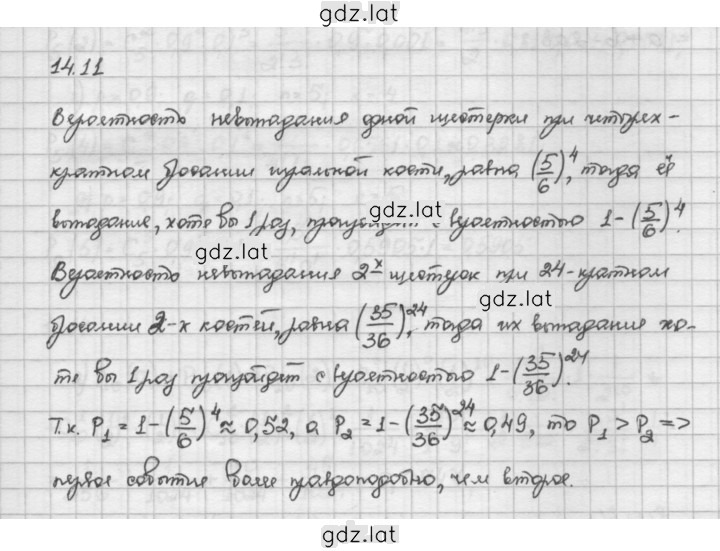 gdz.lat
14.11
Вероятность невыпадания одной шестерки при четырех-
кратном бросании игральной кости, равна (5/6)^4, тогда её
выпадание, хотя бы 1 раз, произойдет с вероятностью 1-(5/6)^4.
gdz.lat
gdz.lat
Вероятность невыпадания 2^х шестерок при 24-кратном
gdz.lat
бросании 2-х костей, равна (35/36)^24, тогда их выпадание хо-
тя бы 1 раз произойдет с вероятностью 1-(35/36)^24.
Т.к. P₁ = 1-(5/6)^4 ≈ 0,52, а P₂ = 1-(35/36)^24 ≈ 0,49, то P₁ > P₂ =>
первое событие более правдоподобно, чем второе.
gdz.lat